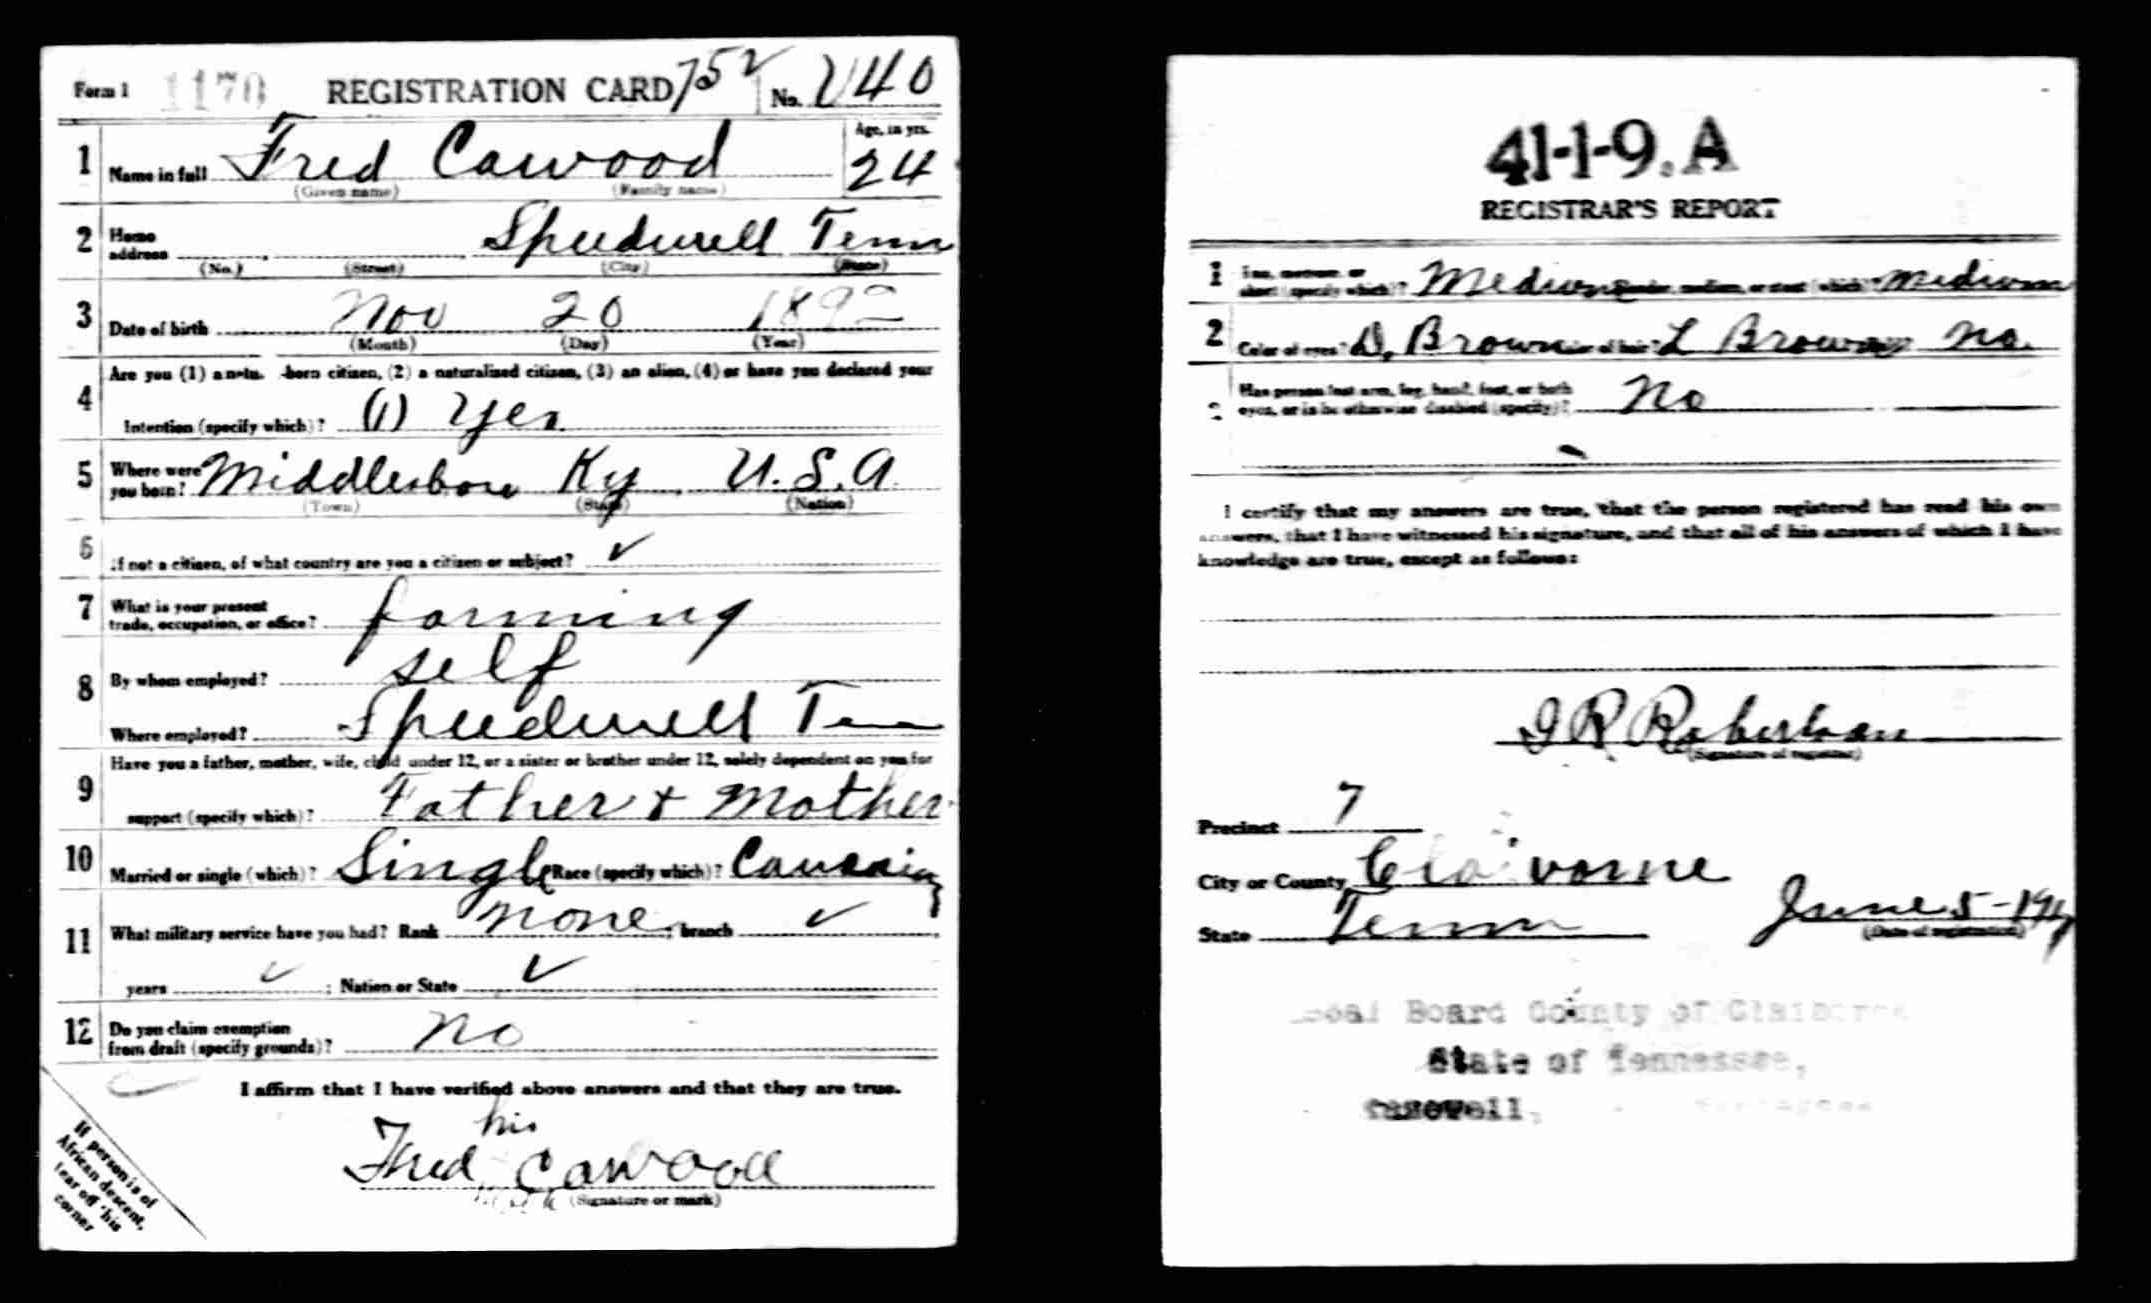 Form 1 1170 REGISTRATION CARD 752 No. 240
1 Name in full Fred Cawood Age, in yrs. 24
(Given name) (Family name)
2 Home address Speedwell Tenn
(No.) (Street) (City) (State)
3 Date of birth Nov 20 1892
(Month) (Day) (Year)
4 Are you (1) a natu. -born citizen, (2) a naturalized citizen, (3) an alien, (4) or have you declared your
Intention (specify which)? (1) Yes
5 Where were you born? Middlesboro Ky U.S.A
(Town) (State) (Nation)
6 If not a citizen, of what country are you a citizen or subject? ✓
7 What is your present trade, occupation, or office? farming
8 By whom employed? self
Where employed? Speedwell Tenn
9 Have you a father, mother, wife, child under 12, or a sister or brother under 12, solely dependent on you for
support (specify which)? Father & Mother
10 Married or single (which)? Single Race (specify which)? Caucasian
11 What military service have you had? Rank none ; branch ✓
years ✓ ; Nation or State ✓
12 Do you claim exemption from draft (specify grounds)? No
I affirm that I have verified above answers and that they are true.
his
Fred Cawood
mark (Signature or mark)
If person is of
African descent,
tear off this
corner
41-1-9. A
REGISTRAR'S REPORT
1 Tall, medium, or short (specify which)? Medium Slender, medium, or stout (which)? medium
2 Color of eyes? D. Brown Color of hair? L Brown No.
3 Has person lost arm, leg, hand, foot, or both eyes, or is he otherwise disabled (specify)? No
I certify that my answers are true, that the person registered has read his own
answers, that I have witnessed his signature, and that all of his answers of which I have
knowledge are true, except as follows:
J R Robertson
(Signature of registrar)
Precinct 7
City or County Claiborne
State Tenn June 5-1917
(Date of registration)
Local Board County of Claiborne
State of Tennessee,
Tazewell,